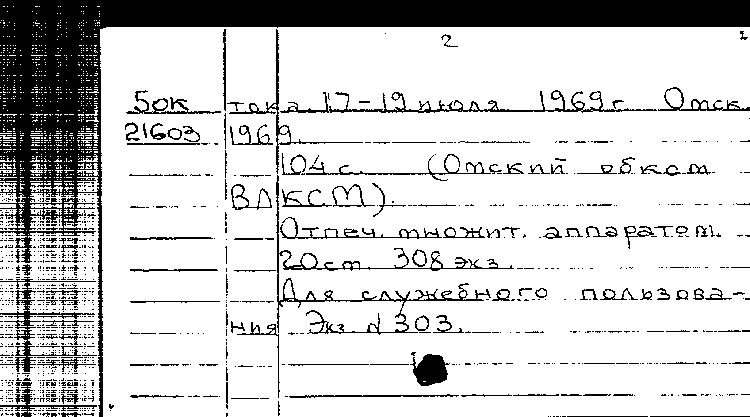 2
50к тока 17-19 июля 1969г Омск
21603 1969.
104 с. (Омский обком
ВЛКСМ).
Отпеч. множит. аппаратом.
20 см. 308 экз.
Для служебного пользова-
ния Экз. N 303.